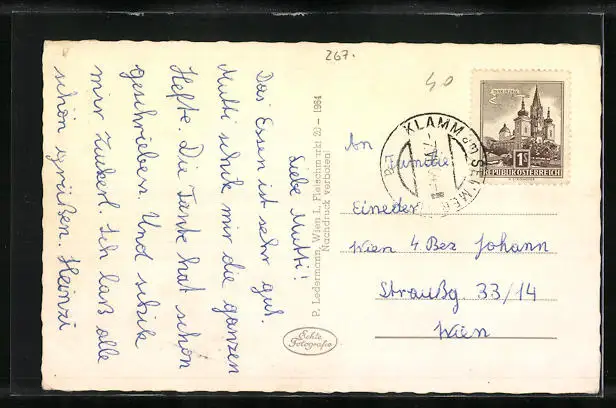 267.
40
Liebe Mutti!
Das Essen ist sehr gut.
Mutti schik mir die ganzen
Hefte. Die Tante hat schon
geschrieben. Und schik
mir Zuckerl. Ich laß alle
schön grüßen. Heinzi
P. Ledermann, Wien I., Fleischmarkt 20 — 1964
Nachdruck verboten!
Echte
Fotografie
KLAMM
MARIAZELL
1 S
REPUBLIK ÖSTERREICH
An
Familie
Eineder
Wien 4. Bez Johann
Straußg. 33/14
Wien